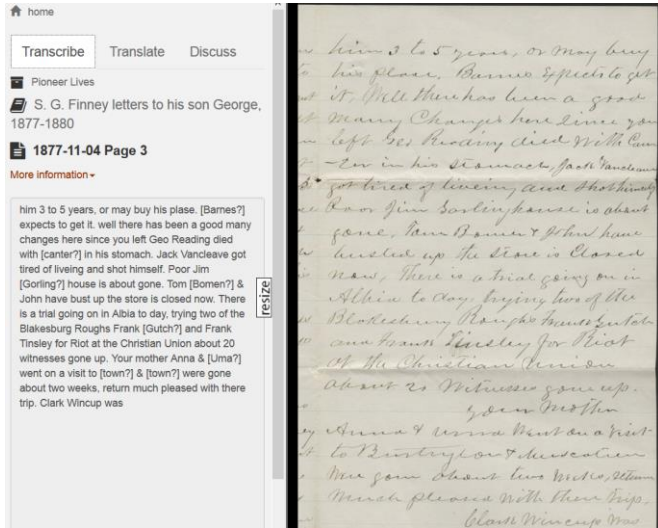 home
Transcribe Translate Discuss
Pioneer Lives
S. G. Finney letters to his son George,
1877-1880
1877-11-04 Page 3
More information
him 3 to 5 years, or may buy his plase. [Barnes?]
expects to get it. well there has been a good many
changes here since you left Geo Reading died
with [canter?] in his stomach. Jack Vancleave got
tired of liveing and shot himself. Poor Jim
[Gorling?] house is about gone. Tom [Bomen?] &
John have bust up the store is closed now. There
is a trial going on in Albia to day, trying two of the
Blakesburg Roughs Frank [Gutch?] and Frank
Tinsley for Riot at the Christian Union about 20
witnesses gone up. Your mother Anna & [Uma?]
went on a visit to [town?] & [town?] were gone
about two weeks, return much pleased with there
trip. Clark Wincup was
resize
him 3 to 5 years, or may buy
his plase. Barnes Expects to get
it, Well there has been a good
Many Changes here Since you
left Geo Reading died With Can
-cer in his Stomach, Jack Vancleave
got tired of liveing and Shot himself
Poor Jim house is about
gone, Tom & John have
busted up the Store is Closed
now, There is a trial going on in
Albia to day, trying two of the
Blakesburg Roughs Frank Gutch
and Frank Tinsley for Riot
at the Christian Union
about 20 Witnesses gone up.
your Mother
Anna & Went on a Visit
to Burlington & Muscatine
Were gone about two Weeks, return
Much pleased With there trip,
Clark Wincup Was